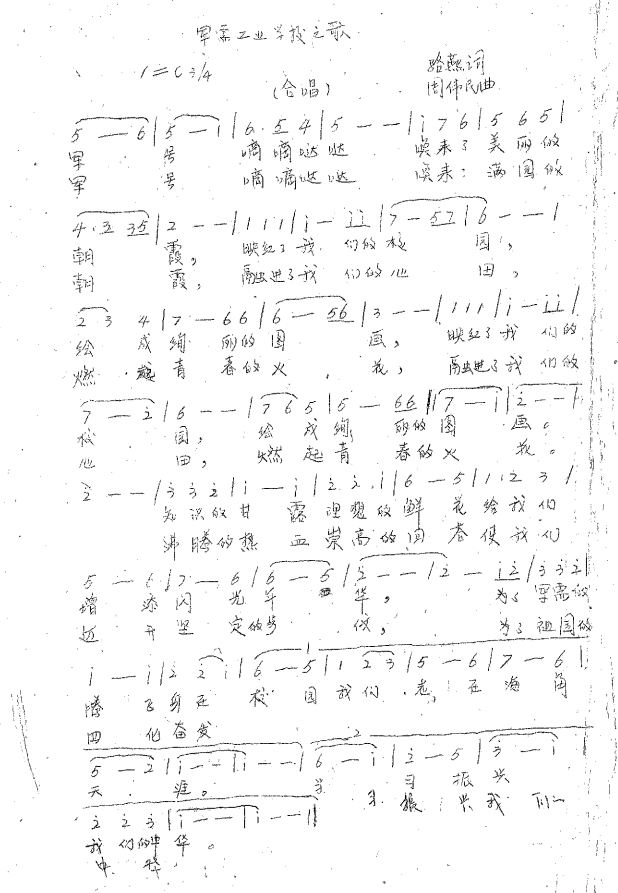 军需工业学校之歌
1=C 3/4
(合唱)
路燕词
周伟民曲
5 — 6 | 5 — i | 6. 5 4 | 5 — — | i 7 6 | 5 6 5 |
军 号 嘀嘀哒哒 唤来了美丽的
军 号 嘀嘀哒哒 唤来: 满园的
4. 5 35 | 2 — — | 1 1 1 | i — i i | 7 — 57 | 6 — — |
朝 霞, 映红了我 们的校 园,
朝 霞, 融进了我 们的心 田,
2 3 4 | 7 — 66 | 6 — 56 | 3 — — | 1 1 1 | i — i i |
绘 成绚 丽的图 画, 映红了我 们的
燃 起青 春的火 花, 融进了我 们的
7 — 2 | 6 — — | 7 6 5 | 5 — 66 | 7 — i | 2 — — |
校 园, 绘 成绚 丽的图 画。
心 田, 燃 起青 春的火 花。
2 — — | 3 3 2 | i — i | 2. 2. i | 6 — 5 | 1. 2 3 |
知识的甘 露理想的鲜 花给我们
沸腾的热 血崇高的 使我们
5 — 6 | 7 — 6 | 6 — 5 | 2 — — | 2 — i 2 | 3 3 2 |
增 添闪 光年 华, 为了军需的
迈 开坚 定的步 伐, 为了祖国的
i — i | 2 2 i | 6 — 5 | 1 2 3 | 5 — 6 | 7 — 6 |
腾 飞 校 园我们 在海角
四 化奋发
5 — 2 | i — — | i — — | 6 — i | 2 — 5 | 3 — i |
天 涯。 学 习 振 兴
习 振 兴我 们
2 2 3 | i — — | i — — |
我们的中华。
中 华